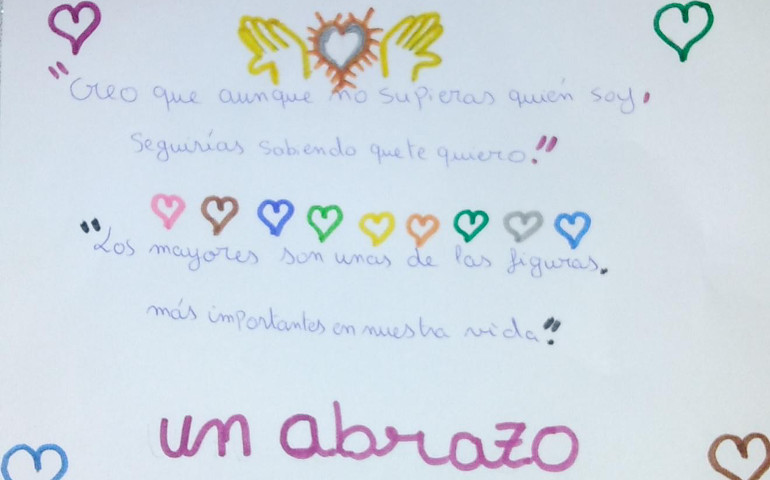 "Creo que aunque no supieras quién soy,
seguirías sabiendo que te quiero."
"Los mayores son unas de las figuras.
más importantes en nuestra vida."
un abrazo